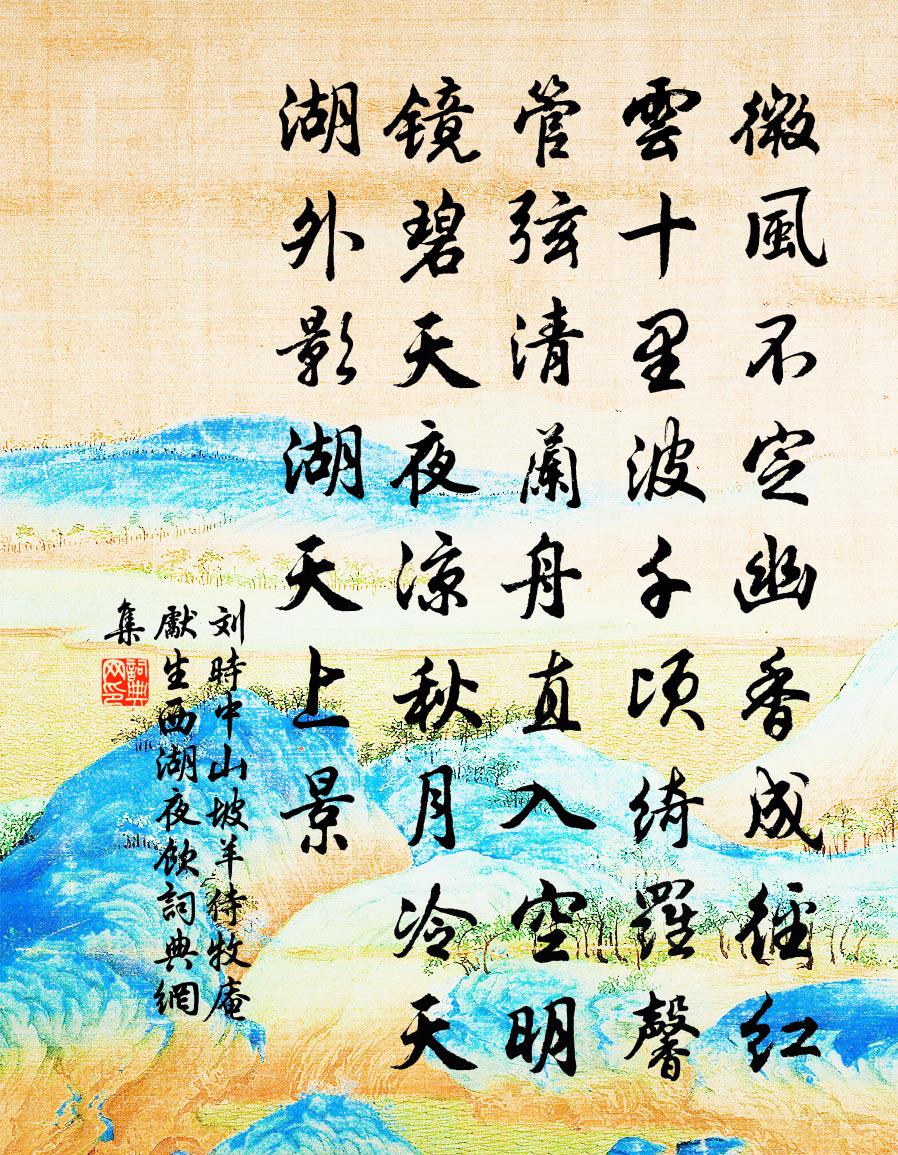 微風不定幽香成徑紅
雲十里波千頃綺羅馨
管弦清蘭舟直入空明
鏡碧天夜涼秋月冷天
湖外影湖天上景
刘時中山坡羊侍牧庵
獻生西湖夜飲詞典網
集
詞典网印